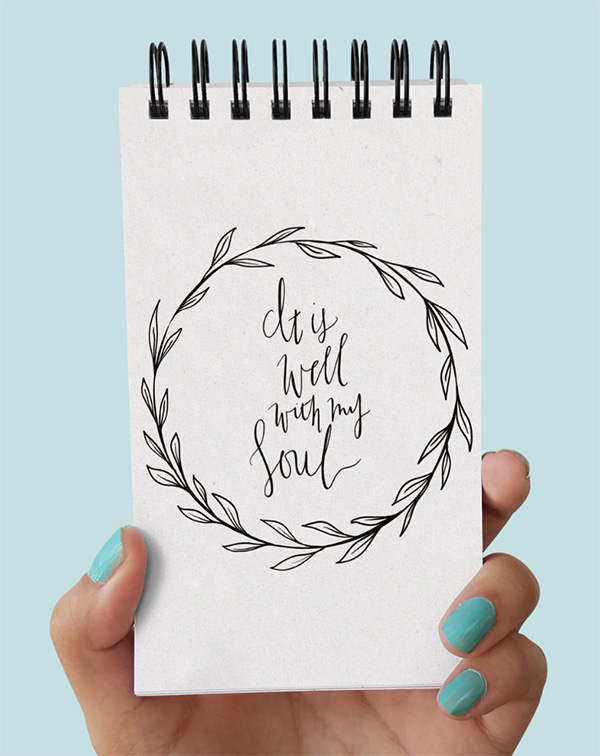 It is
well
with my
Soul